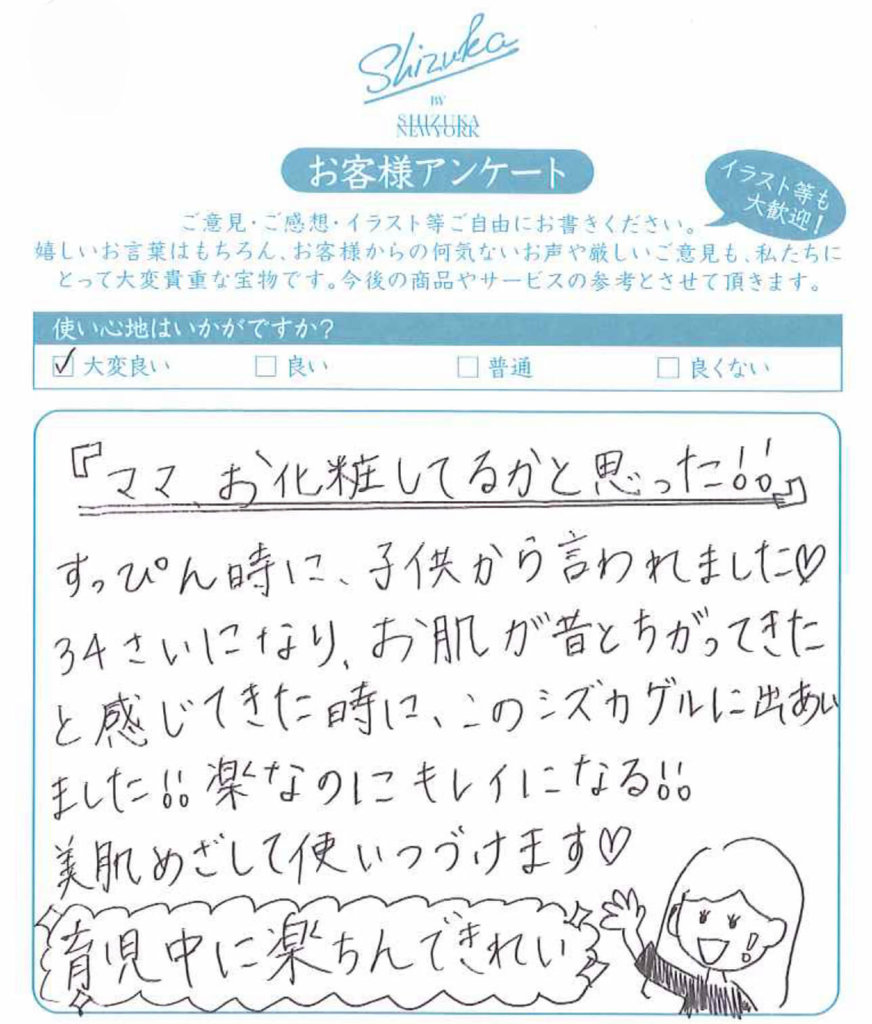 Shizuka
BY
SHIZUKA
NEWYORK
お客様アンケート
イラスト等も
大歓迎!
ご意見・ご感想・イラスト等ご自由にお書きください。
嬉しいお言葉はもちろん、お客様からの何気ないお声や厳しいご意見も、私たちに
とって大変貴重な宝物です。今後の商品やサービスの参考とさせて頂きます。
使い心地はいかがですか?
☑ 大変良い □ 良い □ 普通 □ 良くない
『ママ、お化粧してるかと思った!!』
すっぴん時に、子供から言われました♡
34さいになり、お肌が昔とちがってきた
と感じてきた時に、このシズカゲルに出あい
ました!! 楽なのにキレイになる!!
美肌めざして使いつづけます♡
育児中に楽ちんできれい